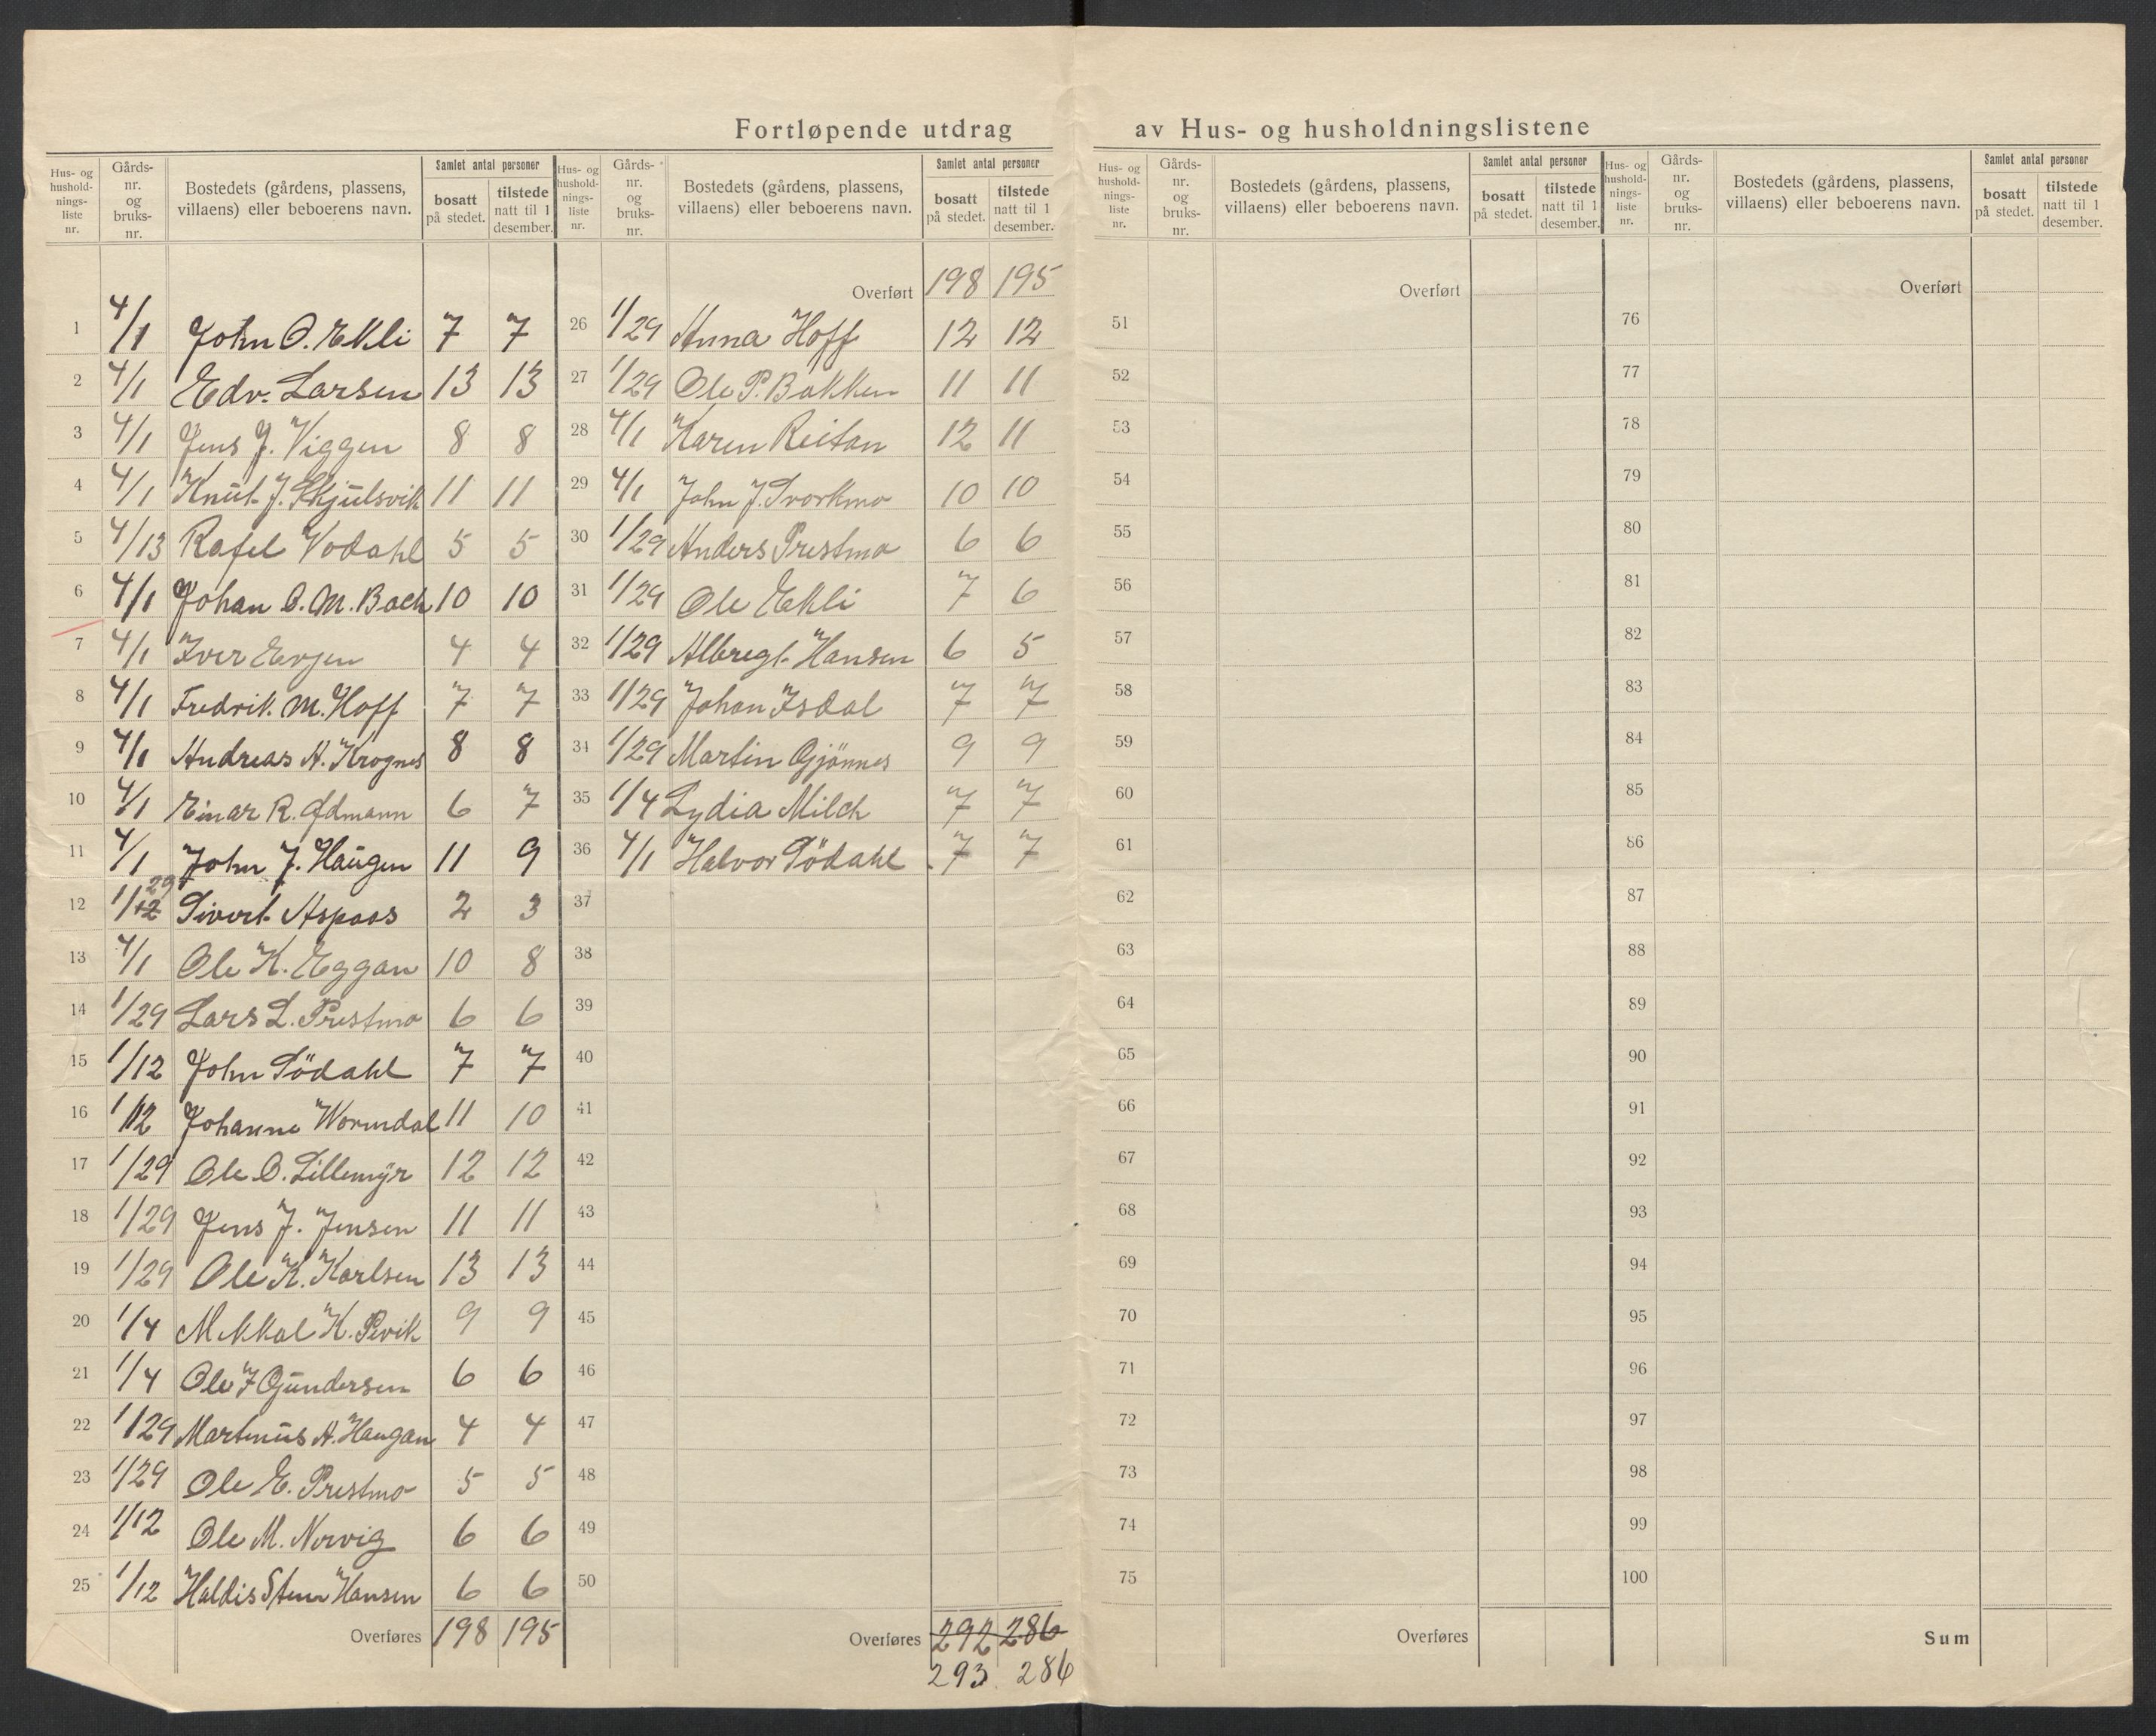 Fortløpende utdrag av Hus- og husholdningslistene
Hus- og husholdningsliste nr. Gårds-nr. og bruks-nr. Bostedets (gårdens, plassens, villaens) eller beboerens navn. Samlet antal personer bosatt på stedet. tilstede natt til 1 desember.
Hus- og husholdningsliste nr. Gårds-nr. og bruks-nr. Bostedets (gårdens, plassens, villaens) eller beboerens navn. Samlet antal personer bosatt på stedet. tilstede natt til 1 desember.
1 4/1 John O. Ekli 7 7
2 4/1 Edv. Larsen 13 13
3 4/1 Jens J. Viggen 8 8
4 4/1 Knut J. Skjulsvik 11 11
5 4/13 Rafel Vodahl 5 5
6 4/1 Johan O. M. Bach 10 10
7 4/1 Iver Evjen 4 4
8 4/1 Fredrik M. Hoff 7 7
9 4/1 Andreas A. Krognes 8 8
10 4/1 Einar R. Ødmann 6 7
11 4/1 John J. Haugen 11 9
12 1/12 29 Sivert Aspaas 2 3
13 4/1 Ole K. Eggan 10 8
14 1/29 Lars L. Prestmo 6 6
15 1/12 John Södahl 7 7
16 1/12 Johanne Wormdal 11 10
17 1/29 Ole O. Lillemyr 12 12
18 1/29 Jens J. Jensen 11 11
19 1/29 Ole K. Karlsen 13 13
20 1/4 Mikkal K. 9 9
21 1/4 Ole J Gundersen 6 6
22 1/29 Martinus A. Haugan 4 4
23 1/29 Ole E. Prestmo 5 5
24 1/12 Ole M. Norvig 6 6
25 1/12 Haldis Steen Hansen 6 6
Overføres 198 195
Overført 198 195
26 1/29 Anna Hoff 12 12
27 1/29 Ole P. Bakken 11 11
28 4/1 Karen Reitan 12 11
29 4/1 John J. Svorkmo 10 10
30 1/29 Anders Prestmo 6 6
31 1/29 Ole Ekli 7 6
32 1/29 Albregt Hansen 6 5
33 1/29 Johan Isdal 7 7
34 1/29 Martin Gjönnes 9 9
35 1/4 Lydia Milch 7 7
36 4/1 Halvor Södahl 7 7
37
38
39
40
41
42
43
44
45
46
47
48
49
50
Overføres 292 286
293 286
Hus- og husholdningsliste nr. Gårds-nr. og bruks-nr. Bostedets (gårdens, plassens, villaens) eller beboerens navn. Samlet antal personer bosatt på stedet. tilstede natt til 1 desember.
Overført
51
52
53
54
55
56
57
58
59
60
61
62
63
64
65
66
67
68
69
70
71
72
73
74
75
Overføres
Hus- og husholdningsliste nr. Gårds-nr. og bruks-nr. Bostedets (gårdens, plassens, villaens) eller beboerens navn. Samlet antal personer bosatt på stedet. tilstede natt til 1 desember.
Overført
76
77
78
79
80
81
82
83
84
85
86
87
88
89
90
91
92
93
94
95
96
97
98
99
100
Sum